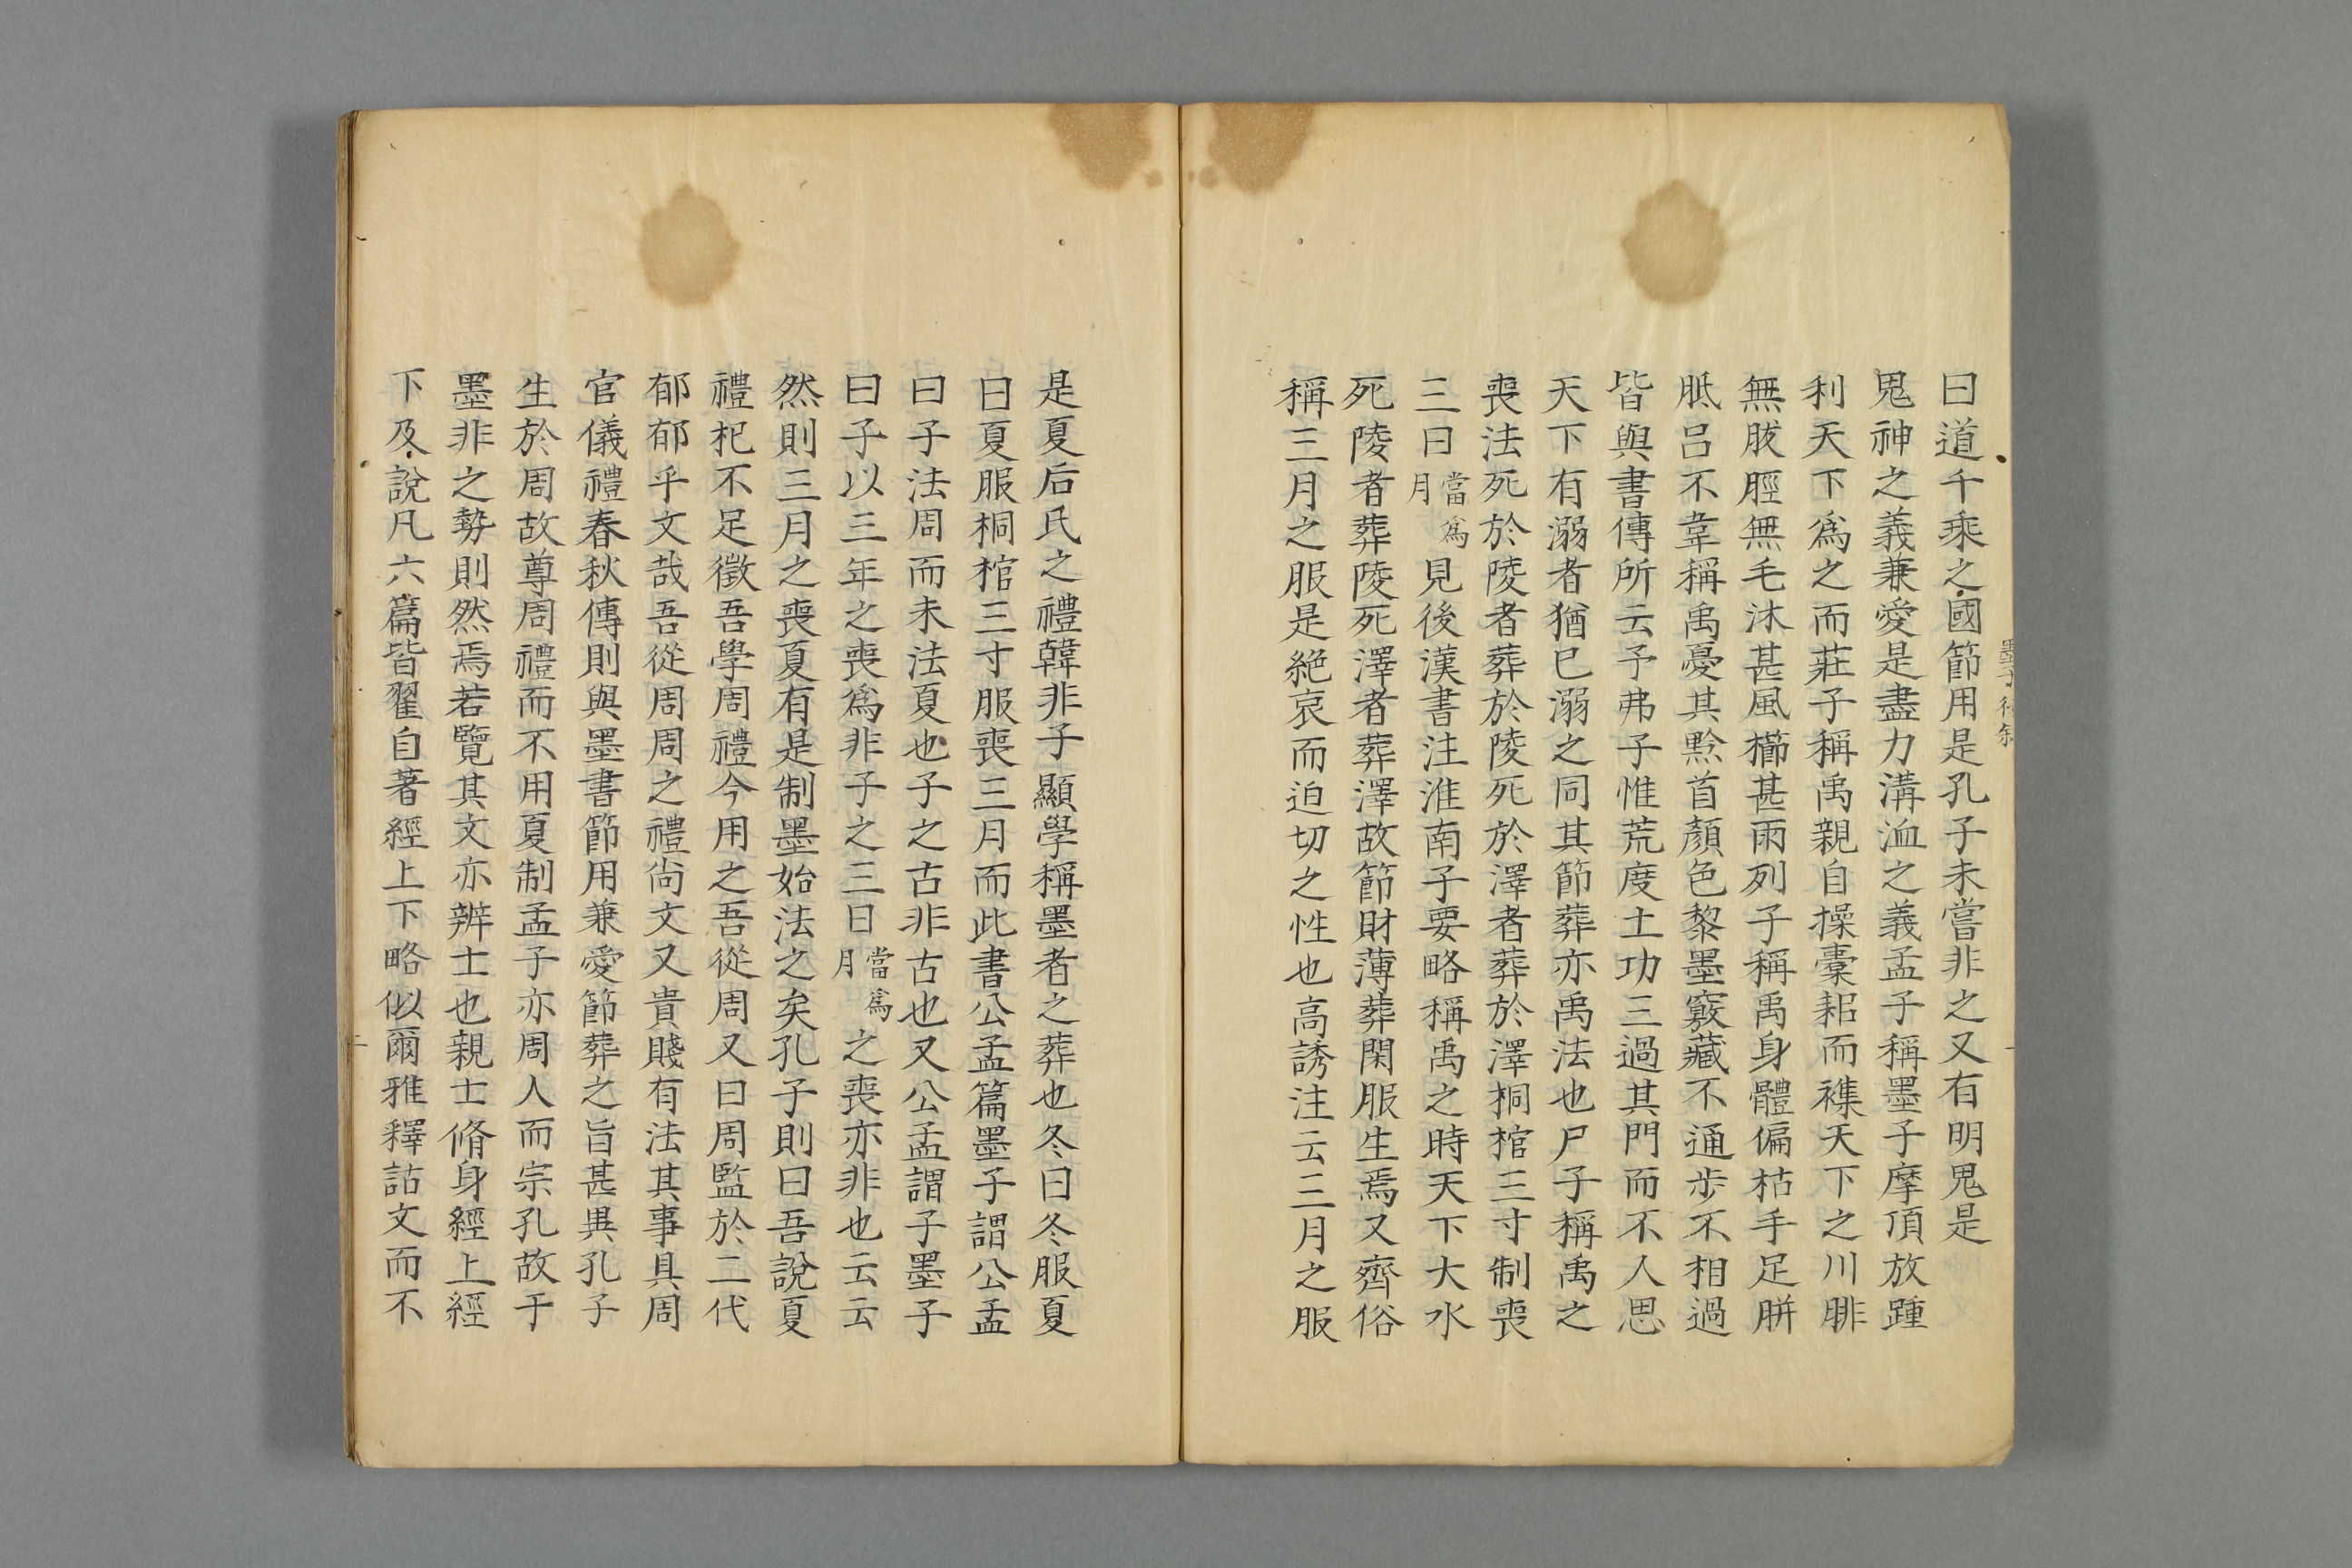 曰道千乘之國節用是孔子未嘗非之又有明鬼是
鬼神之義兼愛是盡力溝洫之義孟子稱墨子摩頂放踵
利天下為之而莊子稱禹親自操橐耜而襍天下之川腓
無胈脛無毛沐甚風櫛甚雨列子稱禹身體偏枯手足胼
胝呂不韋稱禹憂其黔首顏色黎墨竅藏不通步不相過
皆與書傳所云予弗子惟荒度土功三過其門而不入思
天下有溺者猶已溺之同其節葬亦禹法也尸子稱禹之
喪法死於陵者葬於陵死於澤者葬於澤桐棺三寸制喪
三日當為月見後漢書注淮南子要略稱禹之時天下大水
死陵者葬陵死澤者葬澤故節財薄葬閑服生焉又齊俗
稱三月之服是絕哀而迫切之性也高誘注云三月之服
是夏后氏之禮韓非子顯學稱墨者之葬也冬日冬服夏
日夏服桐棺三寸服喪三月而此書公孟篇墨子謂公孟
曰子法周而未法夏也子之古非古也又公孟謂子墨子
曰子以三年之喪為非子之三日當為月之喪亦非也云云
然則三月之喪夏有是制墨始法之矣孔子則曰吾說夏
禮杞不足徵吾學周禮今用之吾從周又曰周監於二代
郁郁乎文哉吾從周周之禮尚文又貴賤有法其事具周
官儀禮春秋傳則與墨書節用兼愛節葬之旨甚異孔子
生於周故尊周禮而不用夏制孟子亦周人而宗孔故于
墨非之勢則然焉若覽其文亦辨士也親士脩身經上經
下及說凡六篇皆翟自著經上下略似爾雅釋詁文而不